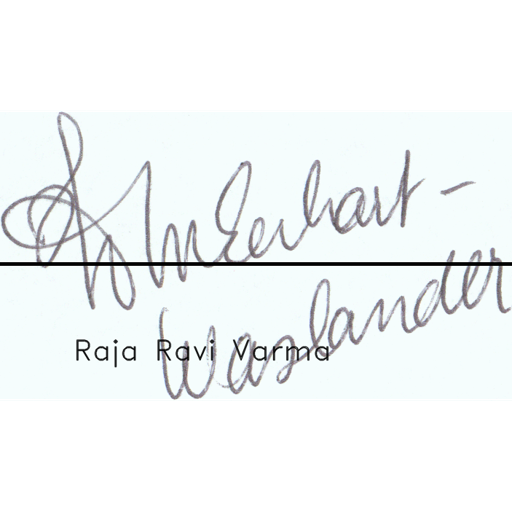 Eerhart-
Waslander
Raja Ravi Varma